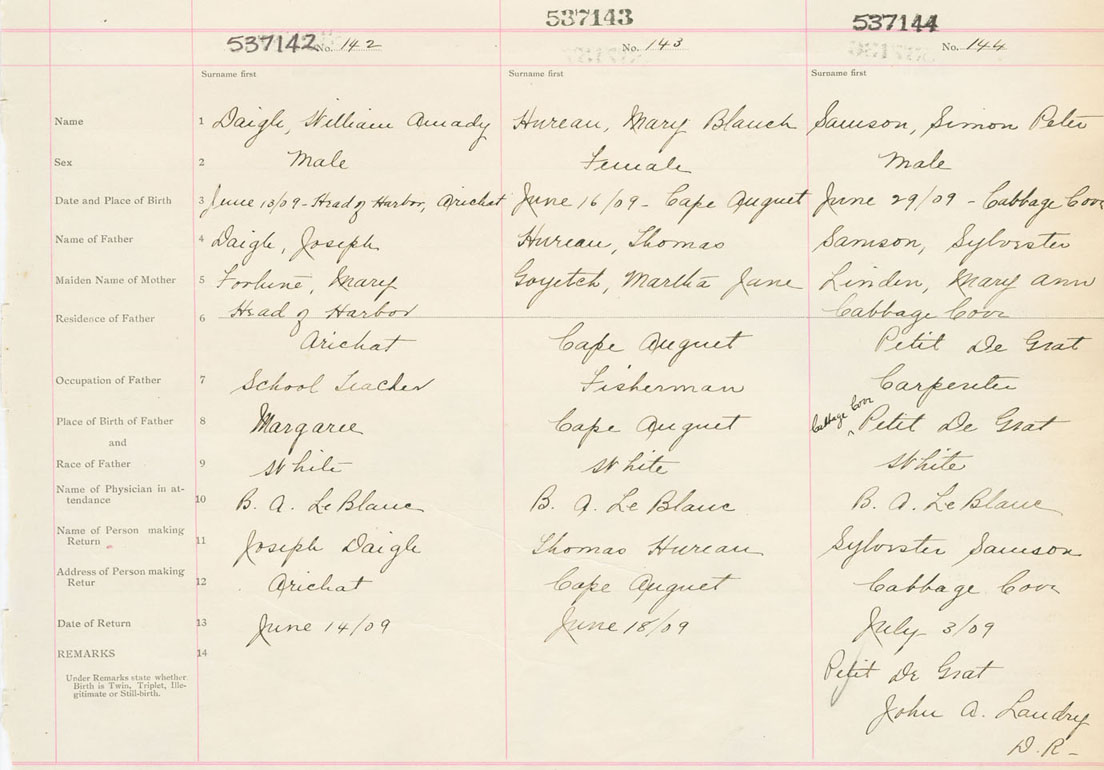 537142 No. 142
537143
No. 143
537144
No. 144
Surname first
Surname first
Surname first
Name 1 Daigle, William Amady Hureau, Mary Blanch Samson, Simon Peter
Sex 2 Male Female Male
Date and Place of Birth 3 June 13/09 - Head of Harbor, Arichat June 16/09 - Cape Auguet June 29/09 - Cabbage Cove
Name of Father 4 Daigle, Joseph Hureau, Thomas Samson, Sylvester
Maiden Name of Mother 5 Fortune, Mary Goyetch, Martha Jane Linden, Mary Ann
Residence of Father 6 Head of Harbor Cabbage Cove
Arichat Cape Auguet Petit De Grat
Occupation of Father 7 School Teacher Fisherman Carpenter
Cabbage Cove
Place of Birth of Father 8 Margaree Cape Auguet Petit De Grat
and
Race of Father 9 White White White
Name of Physician in at-
tendance 10 B. A. LeBlanc B. A. LeBlanc B. A. LeBlanc
Name of Person making
Return 11 Joseph Daigle Thomas Hureau Sylvester Samson
Address of Person making
Retur 12 Arichat Cape Auguet Cabbage Cove
Date of Return 13 June 14/09 June 18/09 July 3/09
REMARKS 14
Petit De Grat
Under Remarks state whether
Birth is Twin, Triplet, Ille-
gitimate or Still-birth.
John A. Landry
D. R-